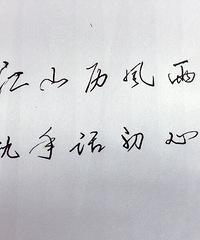 江山历风雨
执手话初心